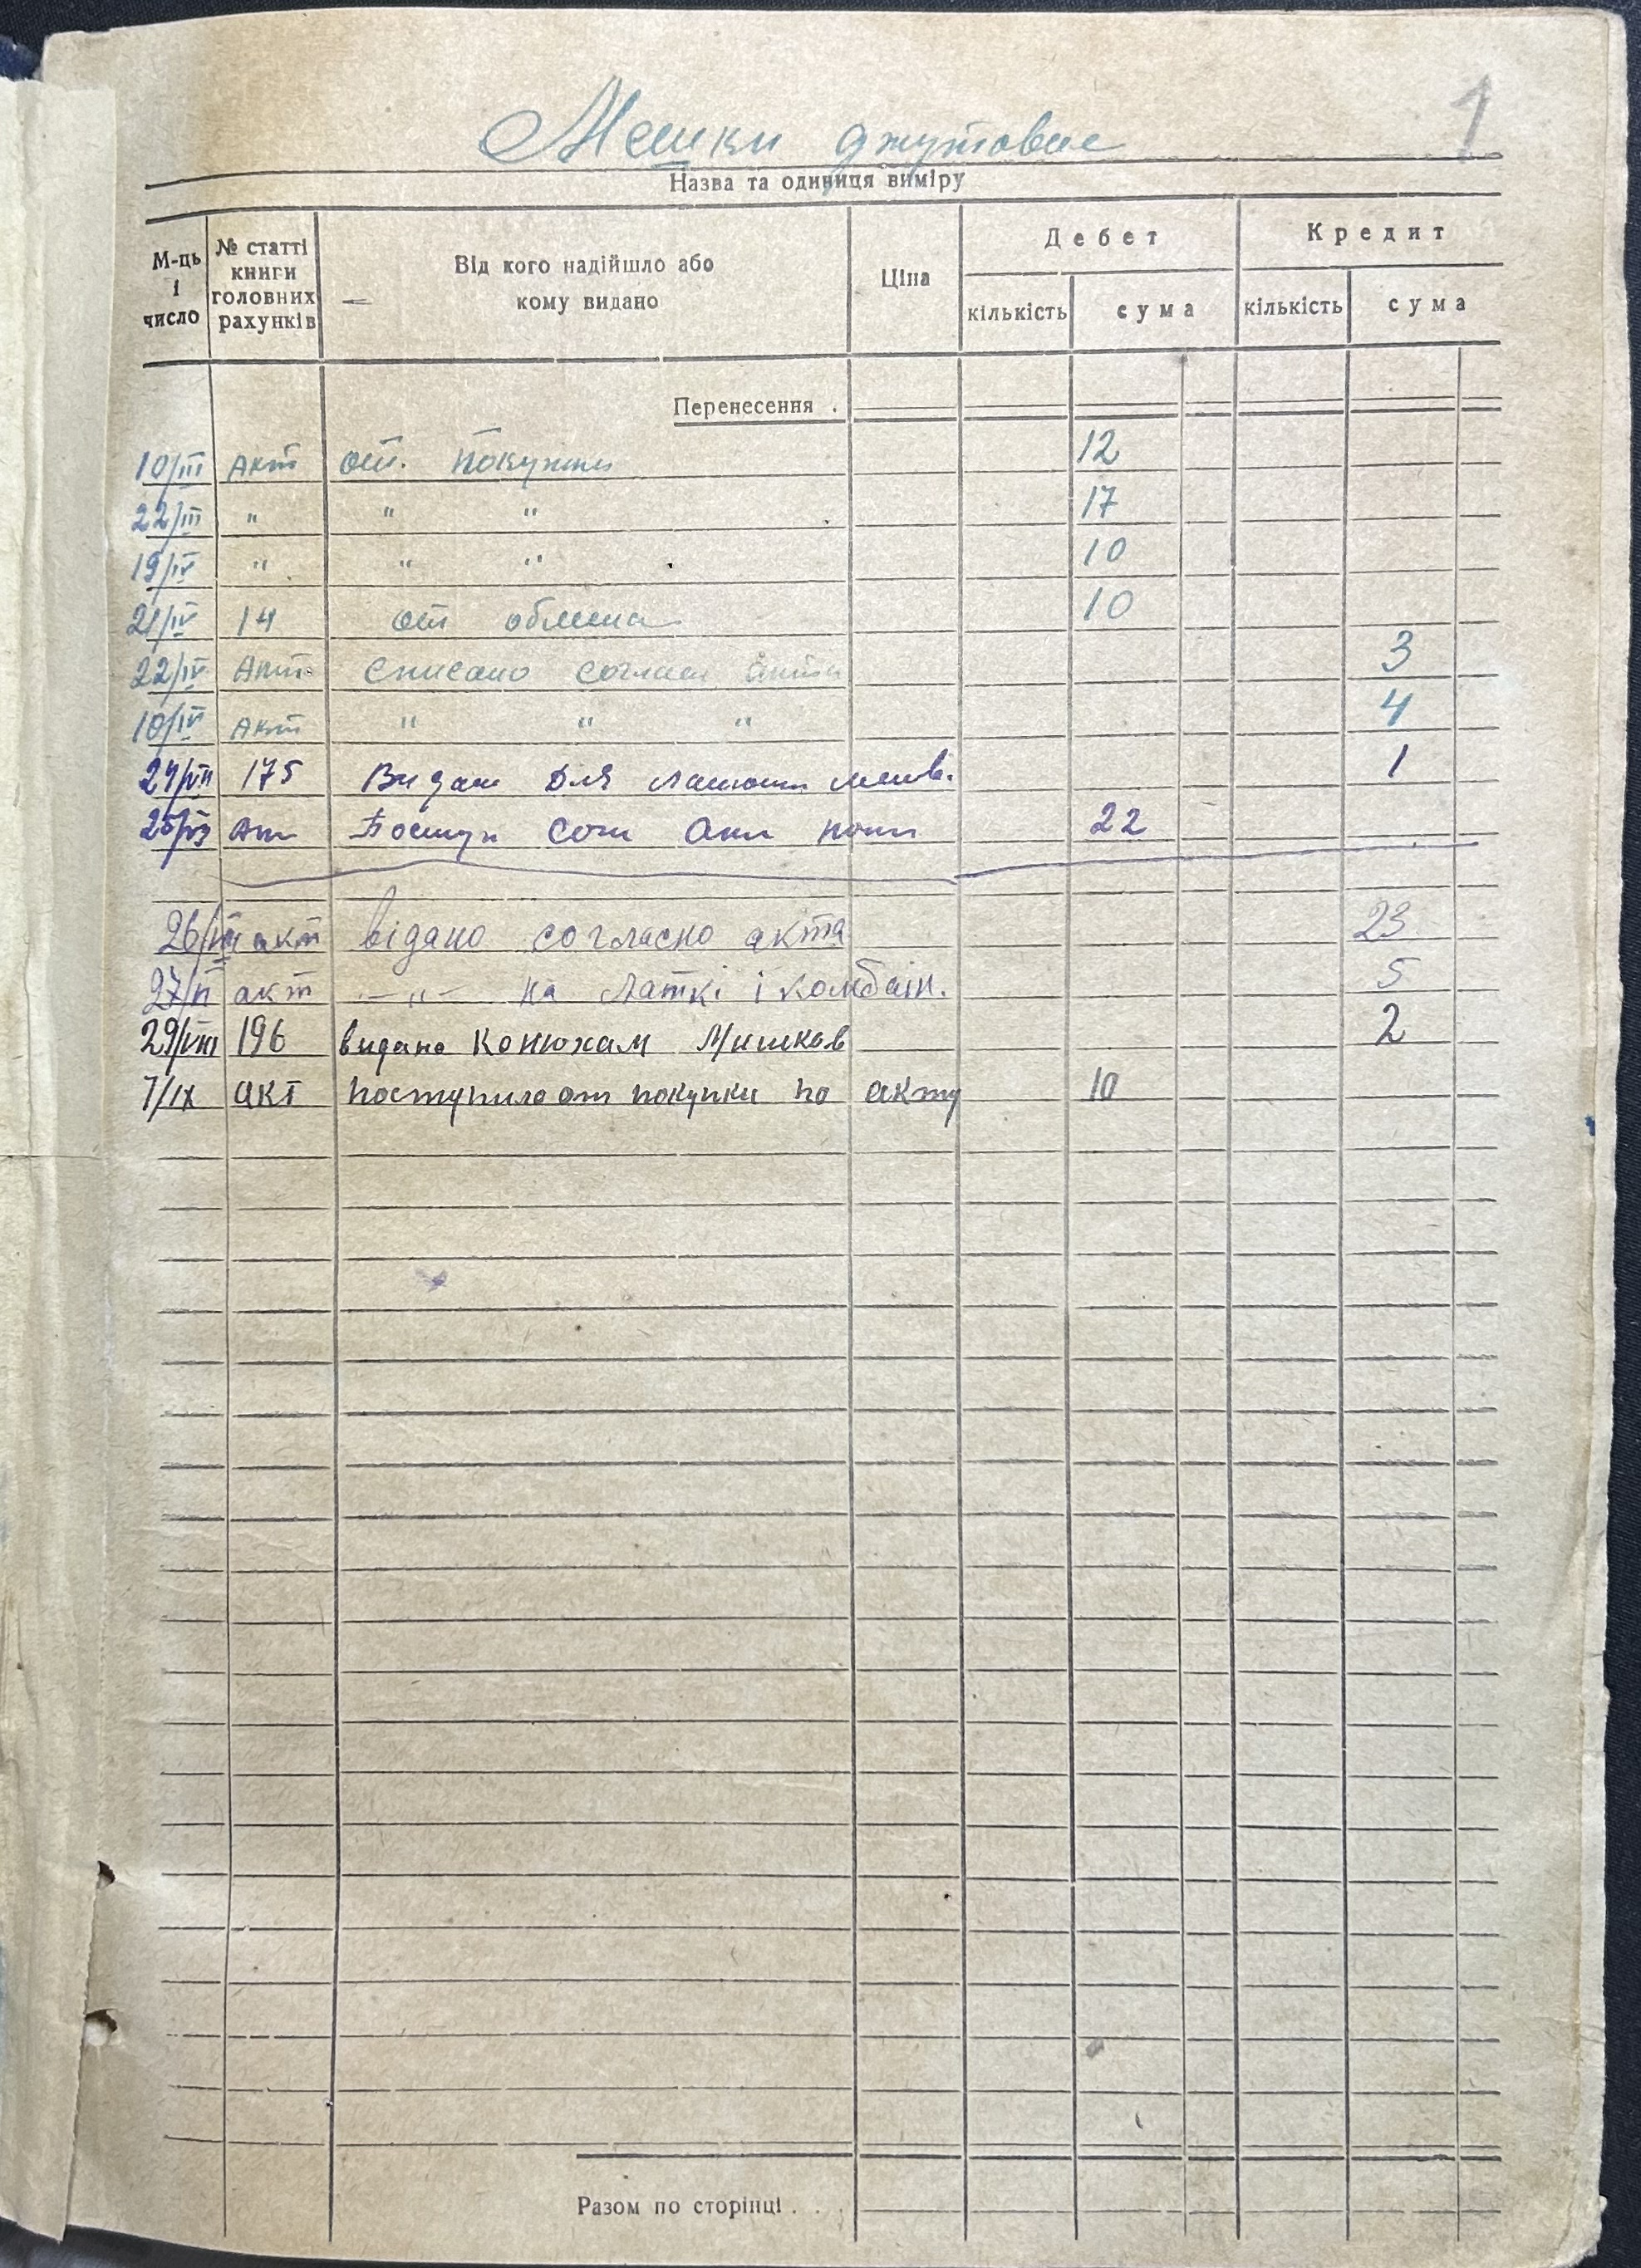 1
Мешки джутовие
Назва та одиниця виміру
М-ць і число № статті книги головних рахунків Від кого надійшло або кому видано Ціна Дебет Кредит
кількість сума кількість сума
Перенесення .
10/III Акт от. покупки 12
22/III " " " 17
19/IV " " " 10
21/IV 14 от обмена 10
22/IV Акт Списано соглас акта 3
10/IV Акт " " " 4
24/VII 175 Видан для 1
Акт 22
акт відано согласно акта 23
акт -"- на латкі і комбаін. 5
29/VIII 196 видано Конюхам Мишков 2
7/IX акт поступило от покупки по акту 10
Разом по сторінці . .